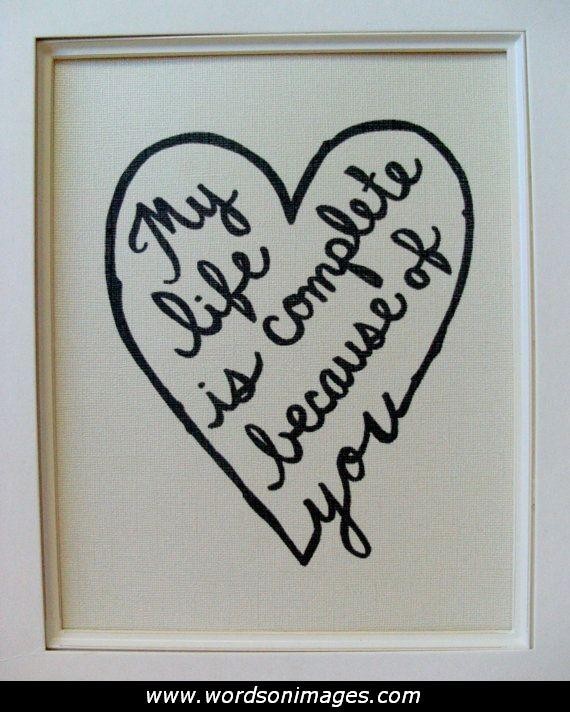 My
life
is complete
because of
you
www.wordsonimages.com